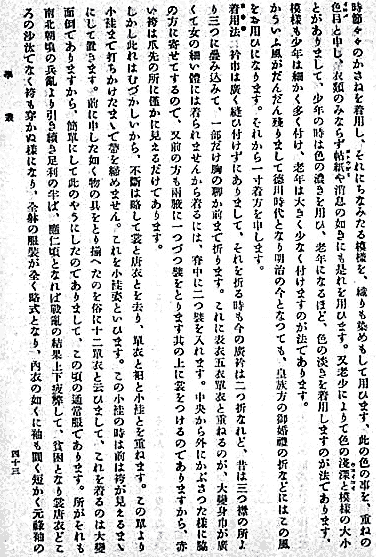 時節々々のかさねを着用し、それにちなみたる模樣を、織りも染めもして用ひます、此の色の事を、重ねの
色目と申し、衣類のみならず帖紙や消息の如きにも是れを用ひます。又老少によりて色の淺深と模樣の大小
とがありまして、少年の時は色の濃きを用ひ、老年になるほど、色の淡きを着用しますのが法であります、
模樣も少年は細かく多く付け、老年は大きく少なく付けますのが法であります。
かういふ風がだん〱殘りまして德川時代となり明治の今となつても、皇族方の御婚禮の折などにはこの風
をお用ひになります。それから一寸着方を申します。
着用法 各巾は廣く縫ひ付けずにありまして、それを折る時も今の廣衿は二つ折なれど、昔は三つ襟の所よ
り三つに疊み込みて、一部だけ胸の聊か前まで折ります。これに表衣五衣單衣と重ねるのが、大變身巾が廣
くて女の細い體には着られませんから着るには、脊中に二つ襞を入れます。中央から外にかぶさつた樣に脇
の方に寄せてするので、又前の方も兩脇に一つづつ襞をとります其の上に裳をつけるのでありますから、赤
い袴は爪先の所に僅かに見えるだけであります。
しかし此れはむづかしいから、不斷は略して裳と唐衣とを去り、單衣と袙と小袿とを重ねます。この單より
小袿まで打ちかけたまゝで帶を締めません。これを小袿姿といひます。この小袿の時は前は袴が見えるまゝ
にして置きます。前に申した如く物の具をとり揃へたのを俗に十二單衣と云ひまして、これを着るのは大變
面倒でありますから、簡單にして此のやうにしたのでありまして、この頃の通常服であります。所がそれも
南北朝頃の兵亂より引き續き足利の半ば、應仁頃となれば戰亂の結果上下疲弊して、貧困となり裳唐衣どこ
ろの沙汰でなく袴も穿かぬ樣になり、全身の服裝が全く略式となり、內衣の如くに袖も闊く短かく元祿袖の
學叢
四十三